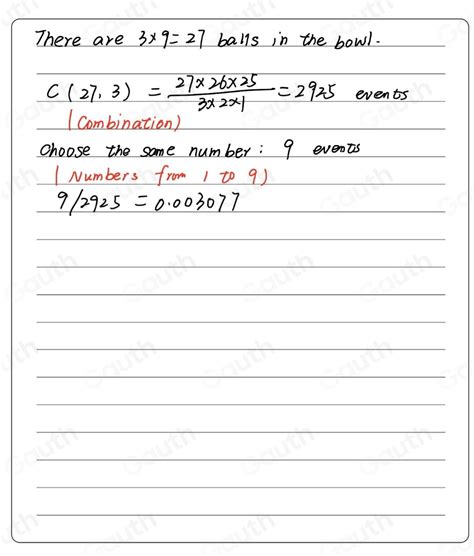 There are 3×9=27 balls in the bowl.
C(27,3) = 27×26×25 / 3×2×1 = 2925 events
(Combination)
Choose the same number: 9 events
(Numbers from 1 to 9)
9/2925 = 0.003077
Gauth